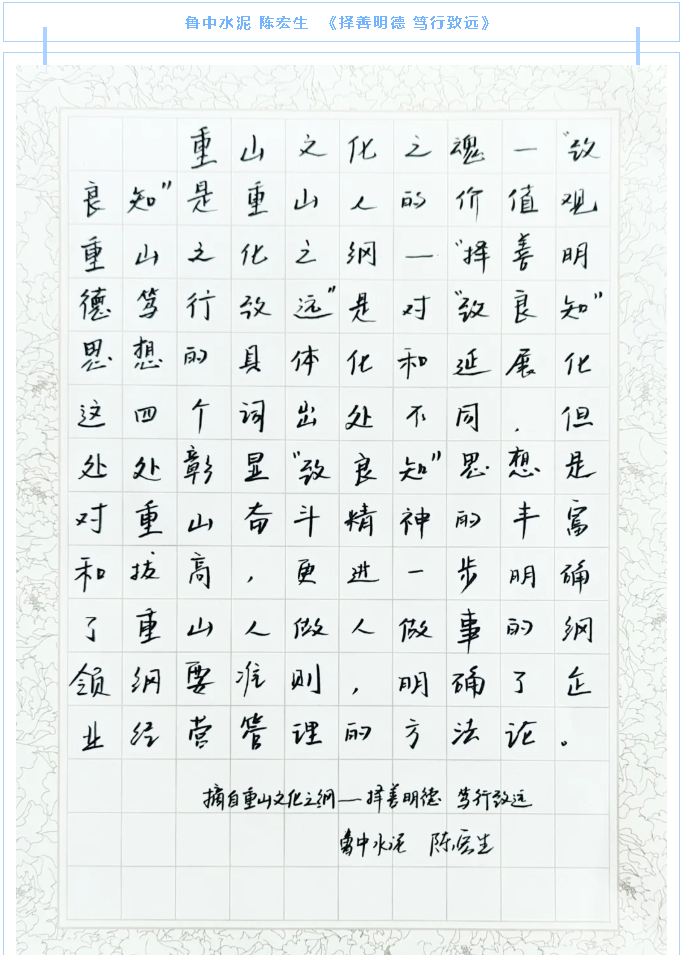 鲁中水泥 陈宏生 《择善明德 笃行致远》
重山文化之魂—“致
良知”是重山人的价值观
重山文化之纲—“择善明
德笃行致远”是对“致良知”
思想的具体化和延展化
这四个词出处不同，但
处处彰显“致良知”思想是
对重山奋斗精神的丰富
和拔高，更进一步明确
了重山人做人做事的纲
领纲要准则，明确了企
业经营管理的方法论。
摘自重山文化之纲—择善明德 笃行致远
鲁中水泥 陈宏生